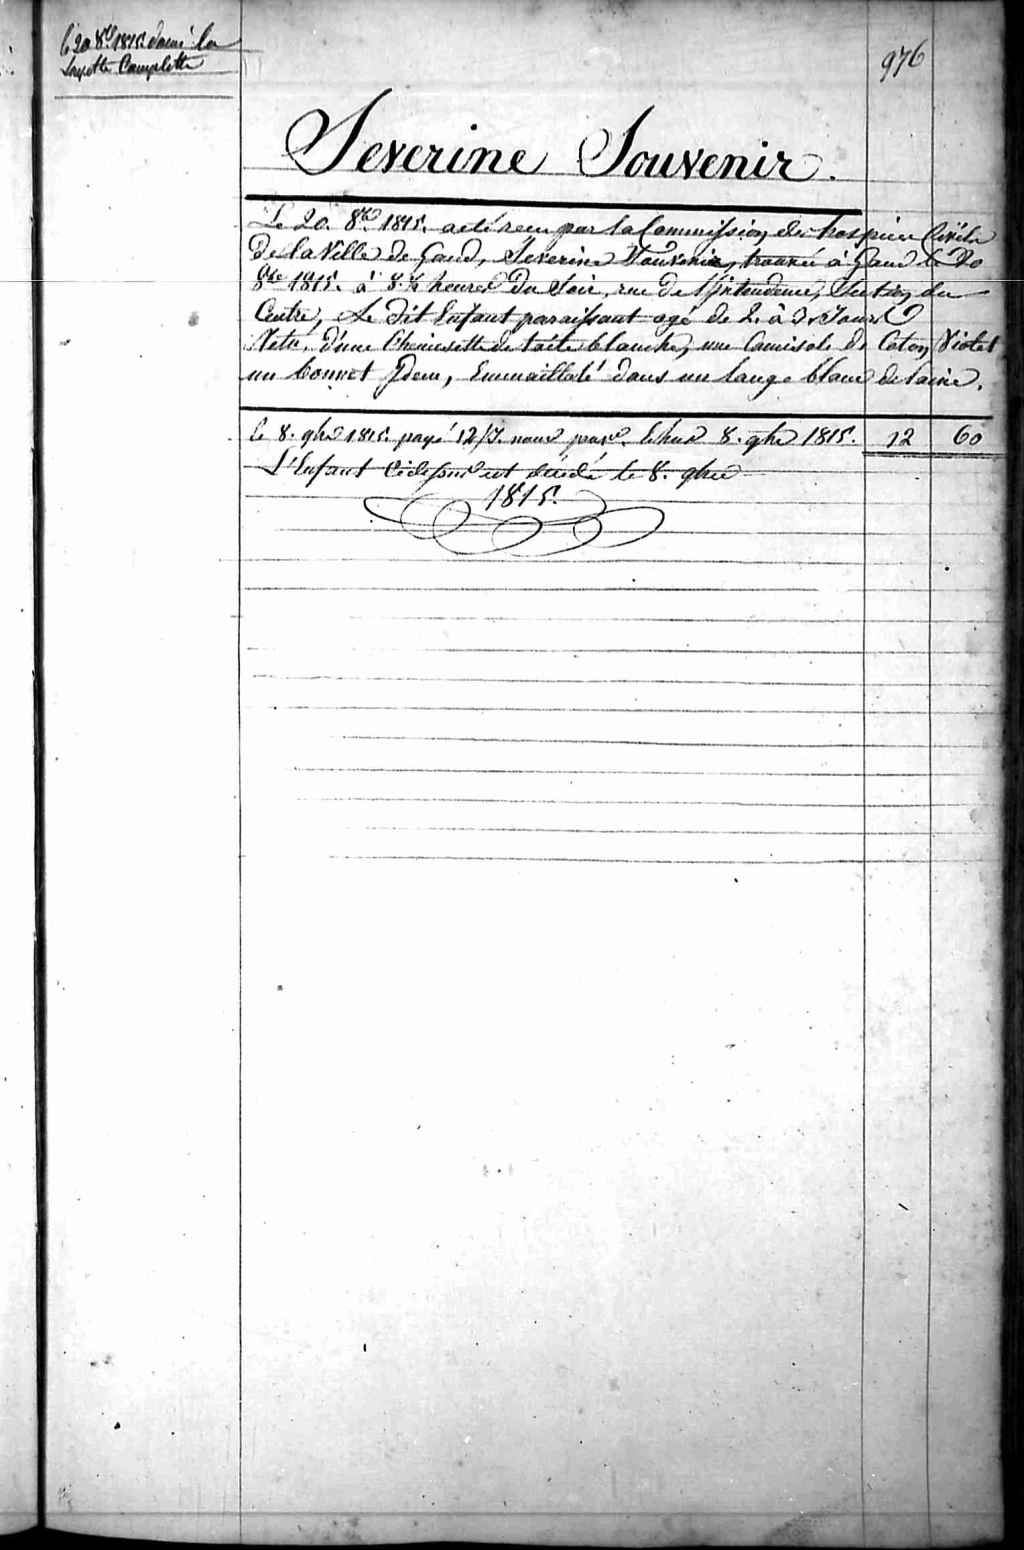 le 20 8bre 1815. donné la
Layette Complette
976
Severine Souvenir.
Le 20. 8bre 1815. a été recu par la Commission des hospices Civils
De la Ville de Gand, Severine Souvenir, trouvée à Gand le 20
8bre 1815. à 8 ½ heures Du Soir, rue de l'Intendence, Section du
Centre, Le Dit Enfant paraissant agé de 2. à 3. Jours
Vetu, d'une Chemisette de toile blanche, une Camisole de Coton Violet
un bonnet Idem, Emmailloté dans un lange blanc de laine.
le 8. 9bre 1815. payé 12/J. nour 8. 9bre 1815. 12 60
L'Enfant Cidessus est décédé le 8. 9bre
1815.